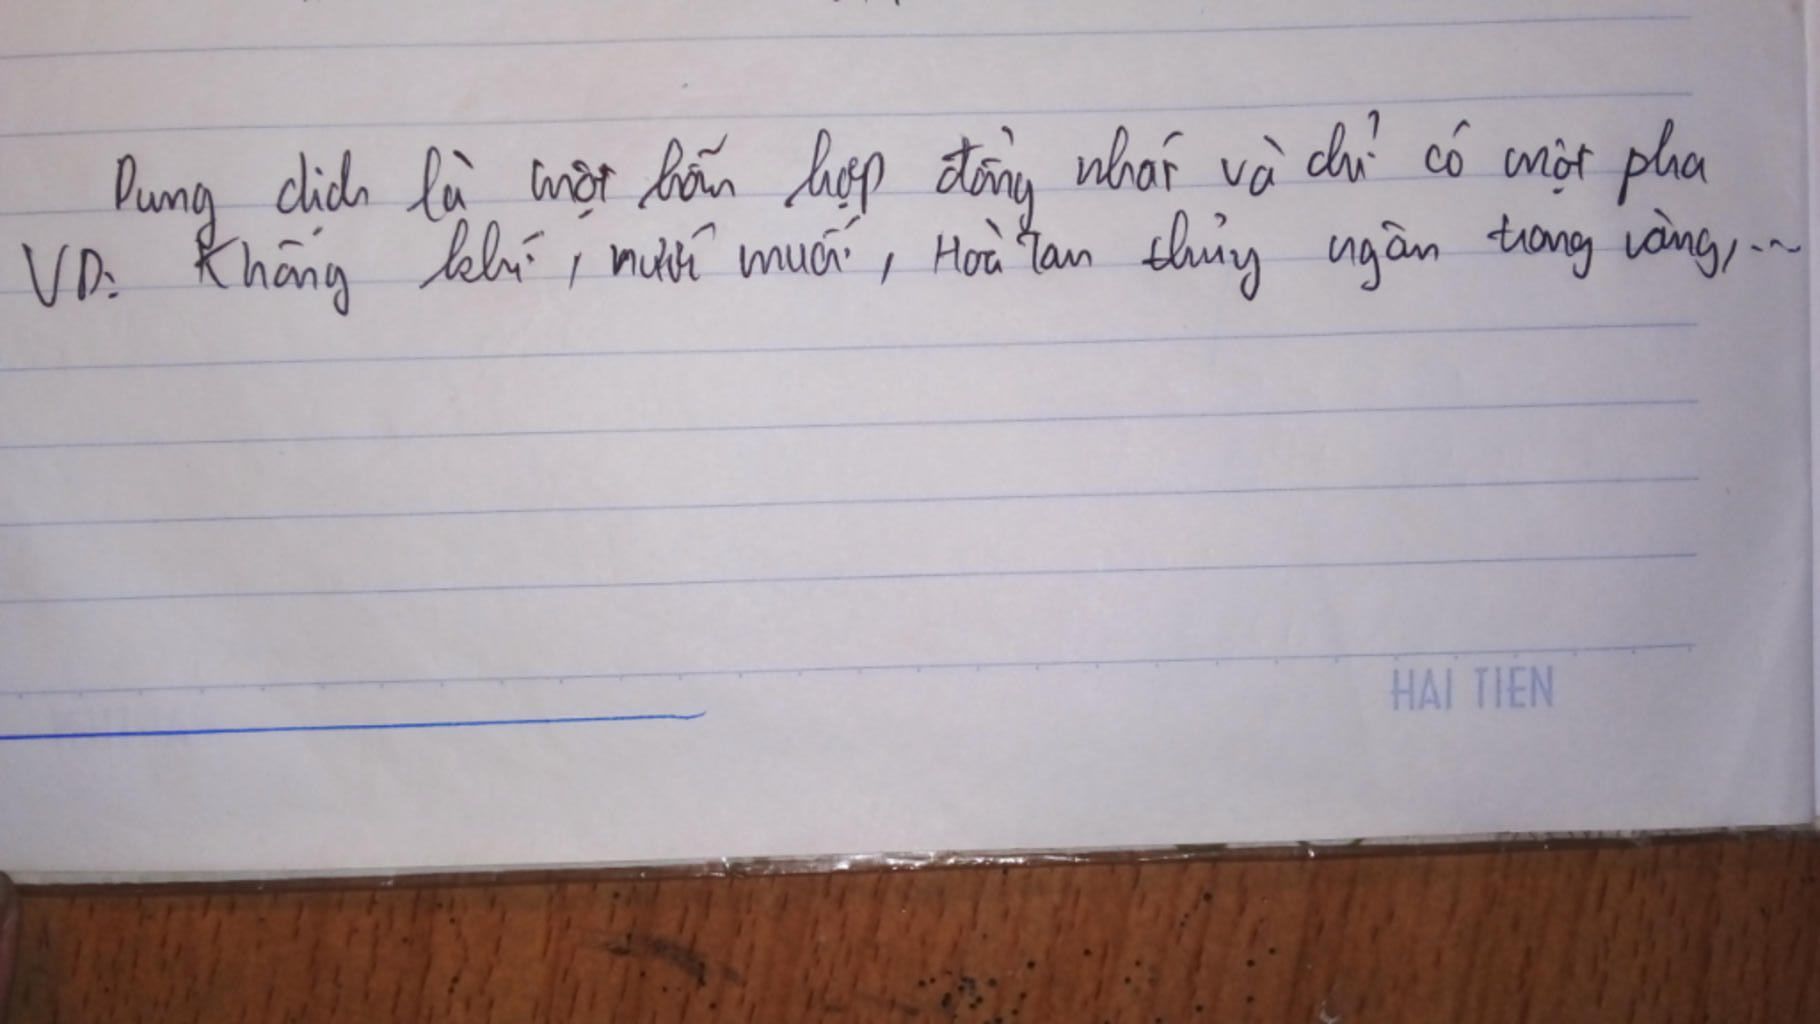 Dung dịch là một hỗn hợp đồng nhất và chỉ có một pha
VD: Không khí, nước muối, Hoà tan thủy ngân trong vàng,...
HAI TIEN